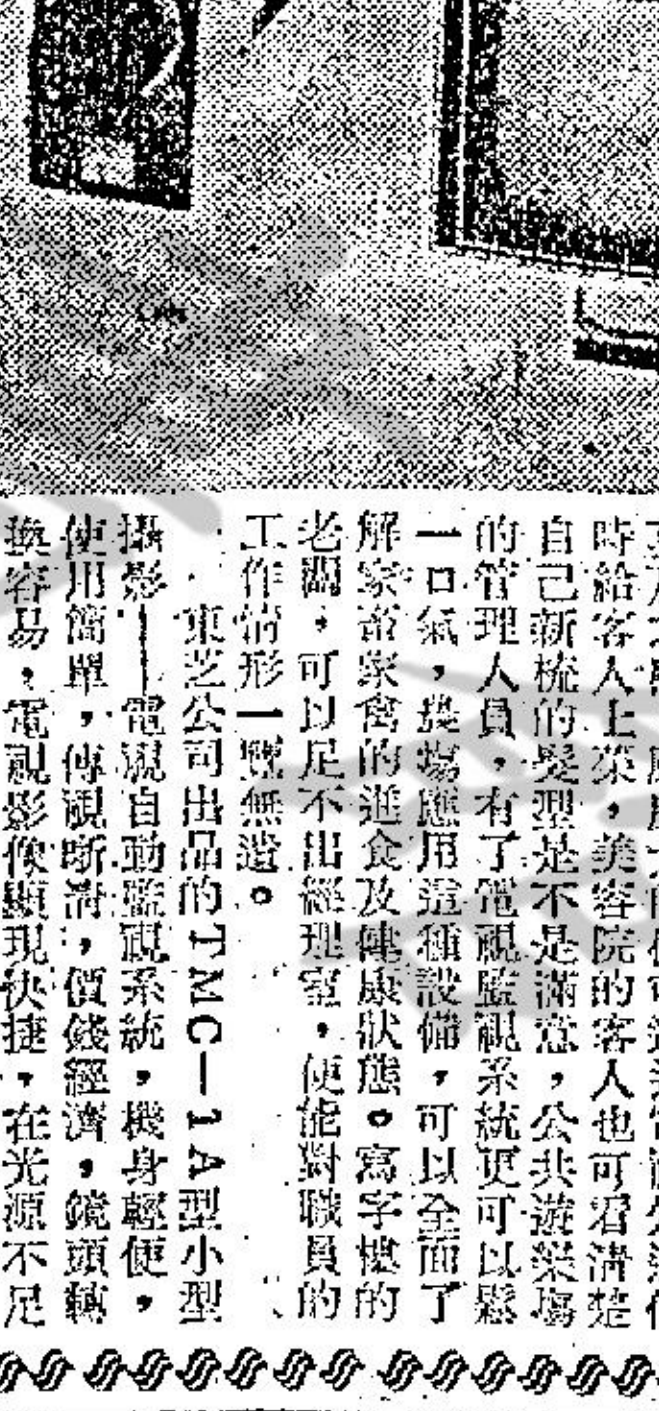 時給客人上菜，美容院的客人也可看清楚
自己新梳的髮型是不是滿意，公共遊樂塲
的管理人員，有了電視監視系統更可以鬆
一口氣，農塲應用這種設備，可以全面了
解家畜家禽的進食及健康狀態。寫字樓的
老闆，可以足不出經理室，便能對職員的
工作情形一覽無遺。
東芝公司出品的TMC—1A型小型
攝影——電視自動監視系統，機身輕便，
使用簡單，傳視晰淸，價錢經濟，鏡頭轉
換容易，電視影像顯現快捷，在光源不足